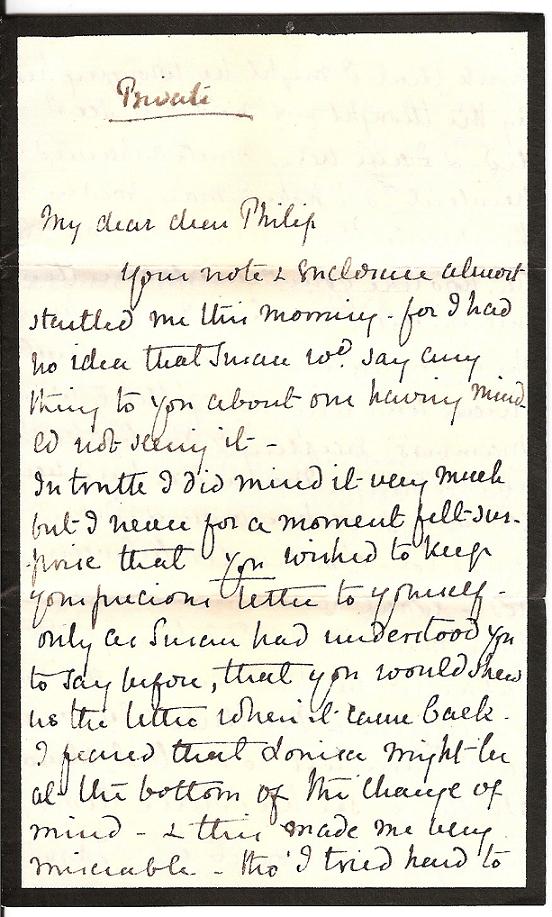 Private
My dear dear Philip
Your note & enclosure almost
startled me this morning - for I had
no idea that Susan wd. say any
thing to you about our having mind-
ed not seeing it -
In truth I did mind it very much
but I never for a moment felt sur-
prise that you wished to keep
your precious letter to yourself -
only as Susan had understood you
to say before, that you would shew
us the letter when it came back.
I feared that Louisa might be
at the bottom of the change of
mind - & this made me very
miserable - tho' I tried hard to